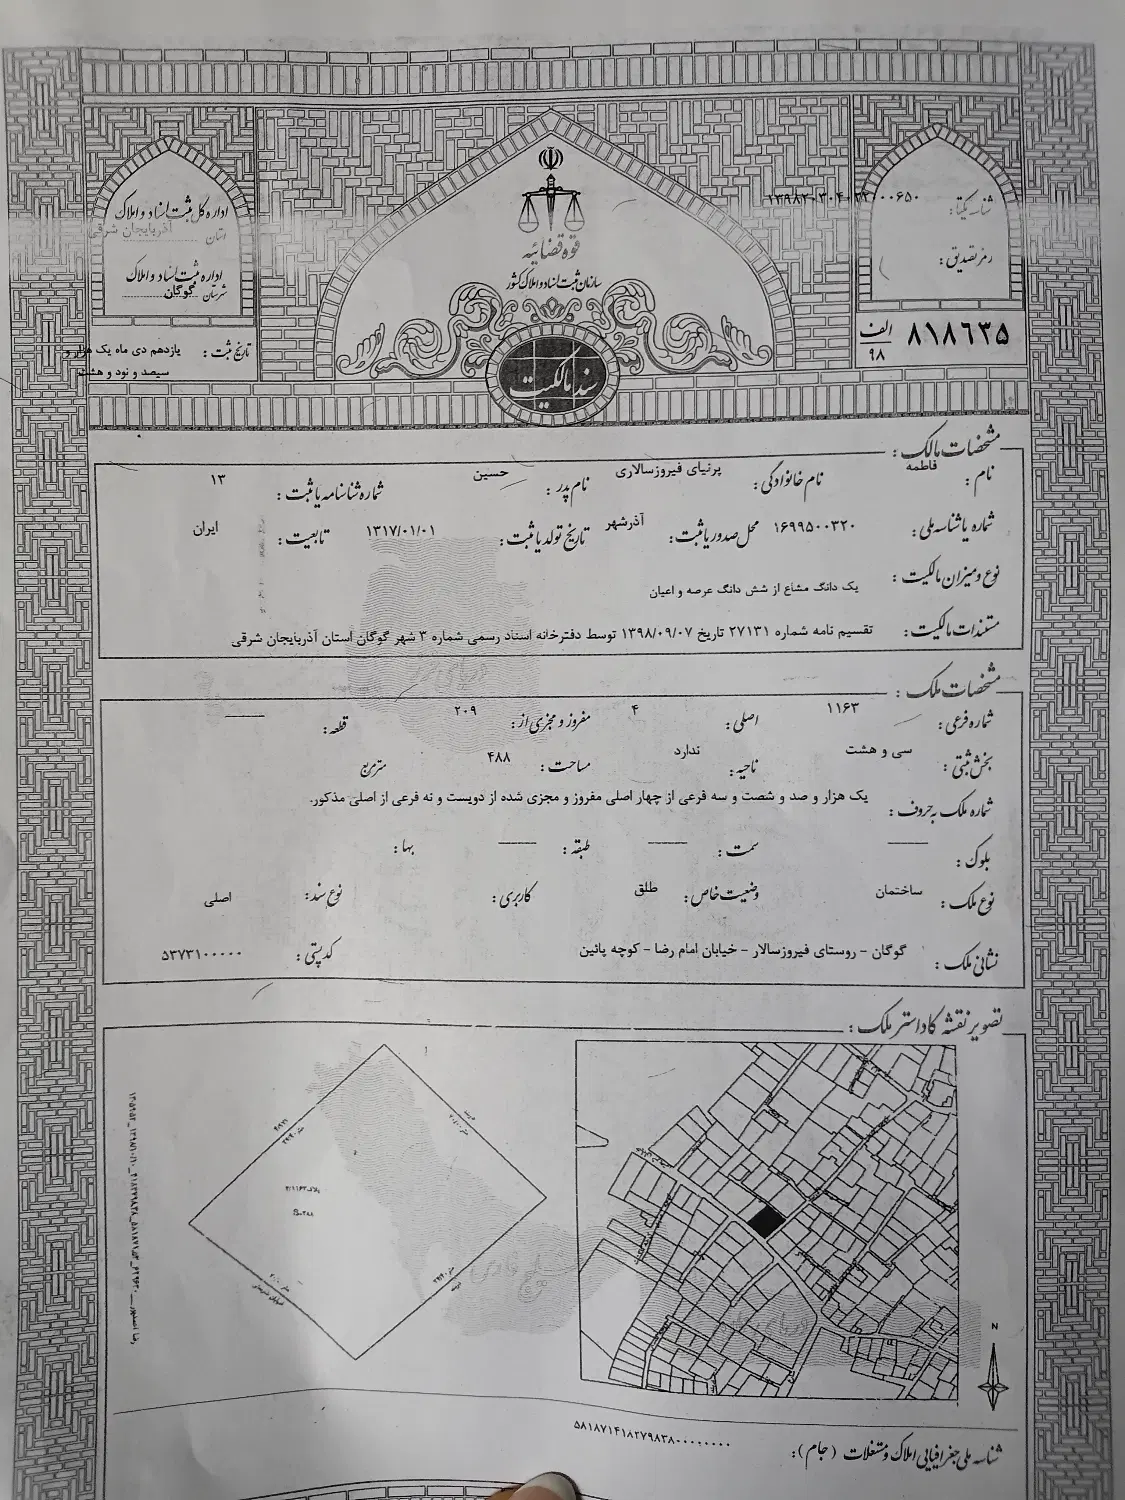 قوه قضائیه
سازمان ثبت اسناد و املاک کشور
سند مالکیت
شناسه یکتا: ۱۳۹۸۲۰۳۰۴۰۳۲۰۰۰۶۵۰
رمز تصدیق:
۸۱۸۶۳۵ الف
۹۸
اداره کل ثبت اسناد و املاک
استان آذربایجان شرقی
اداره ثبت اسناد و املاک
شهرستان گوگان
تاریخ ثبت: یازدهم دی ماه یک هزار و
سیصد و نود و هشت
مشخصات مالک:
نام: فاطمه نام خانوادگی: پرنیای فیروزسالاری نام پدر: حسین شماره شناسنامه یا ثبت: ۱۳
شماره یا شناسه ملی: ۱۶۹۹۵۰۰۳۲۰ محل صدور یا ثبت: آذرشهر تاریخ تولد یا ثبت: ۱۳۱۷/۰۱/۰۱ تابعیت: ایران
نوع و میزان مالکیت: یک دانگ مشاع از شش دانگ عرصه و اعیان
مستندات مالکیت: تقسیم نامه شماره ۲۷۱۳۱ تاریخ ۱۳۹۸/۰۹/۰۷ توسط دفترخانه اسناد رسمی شماره ۳ شهر گوگان استان آذربایجان شرقی
مشخصات ملک:
شماره فرعی: ۱۱۶۳ اصلی: ۴ مفروز و مجزی از: ۲۰۹ قطعه: ——
بخش ثبتی: سی و هشت ناحیه: ندارد مساحت: ۴۸۸ مترمربع
شماره ملک به حروف: یک هزار و صد و شصت و سه فرعی از چهار اصلی مفروز و مجزی شده از دویست و نه فرعی از اصلی مذکور.
بلوک: —— سمت: —— طبقه: —— بها:
نوع ملک: ساختمان وضعیت خاص: طلق کاربری: نوع سند: اصلی
نشانی ملک: گوگان - روستای فیروزسالار - خیابان امام رضا - کوچه پائین کد پستی: ۵۳۷۳۱۰۰۰۰۰
تصویر نقشه کاداستر ملک:
پلاک ۴/۱۱۶۳
S=۴۸۸
دریای خزر
خلیج فارس
N
۵۸۱۸۷۱۴۱۸۲۷۹۸۳۸۰۰۰۰۰۰۰۰
شناسه ملی جغرافیایی املاک و مستغلات (جام):